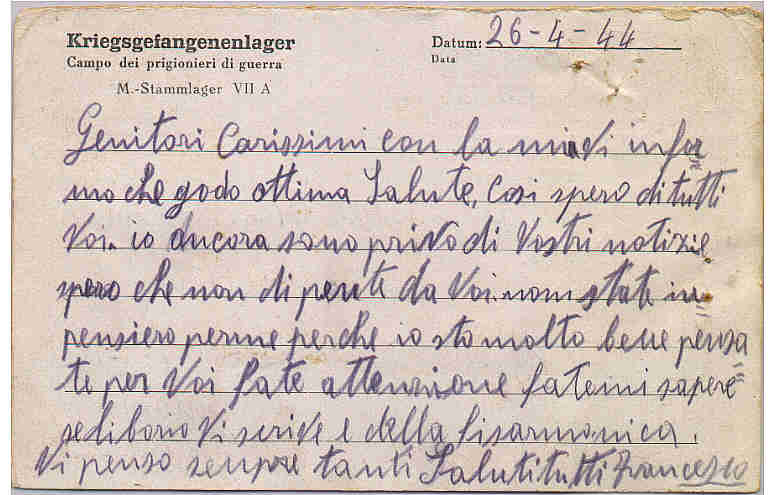 Kriegsgefangenenlager
Campo dei prigionieri di guerra
M.-Stammlager VII A
Datum: 26-4-44
Data
Genitori Carissimi con la mia Vi infor
mo che godo ottima Salute, Cosi spero di tutti
Voi. io ancora sono privo di Vostri notizie
spero che non di pente da Voi. nom state in
pensiero perme perche io sto molto bene pensa
te per Voi fate attenzione fatemi sapere
se liborio Vi scrive e della fisarmonica.
Vi penso sempre tanti Saluti tutti Francesco